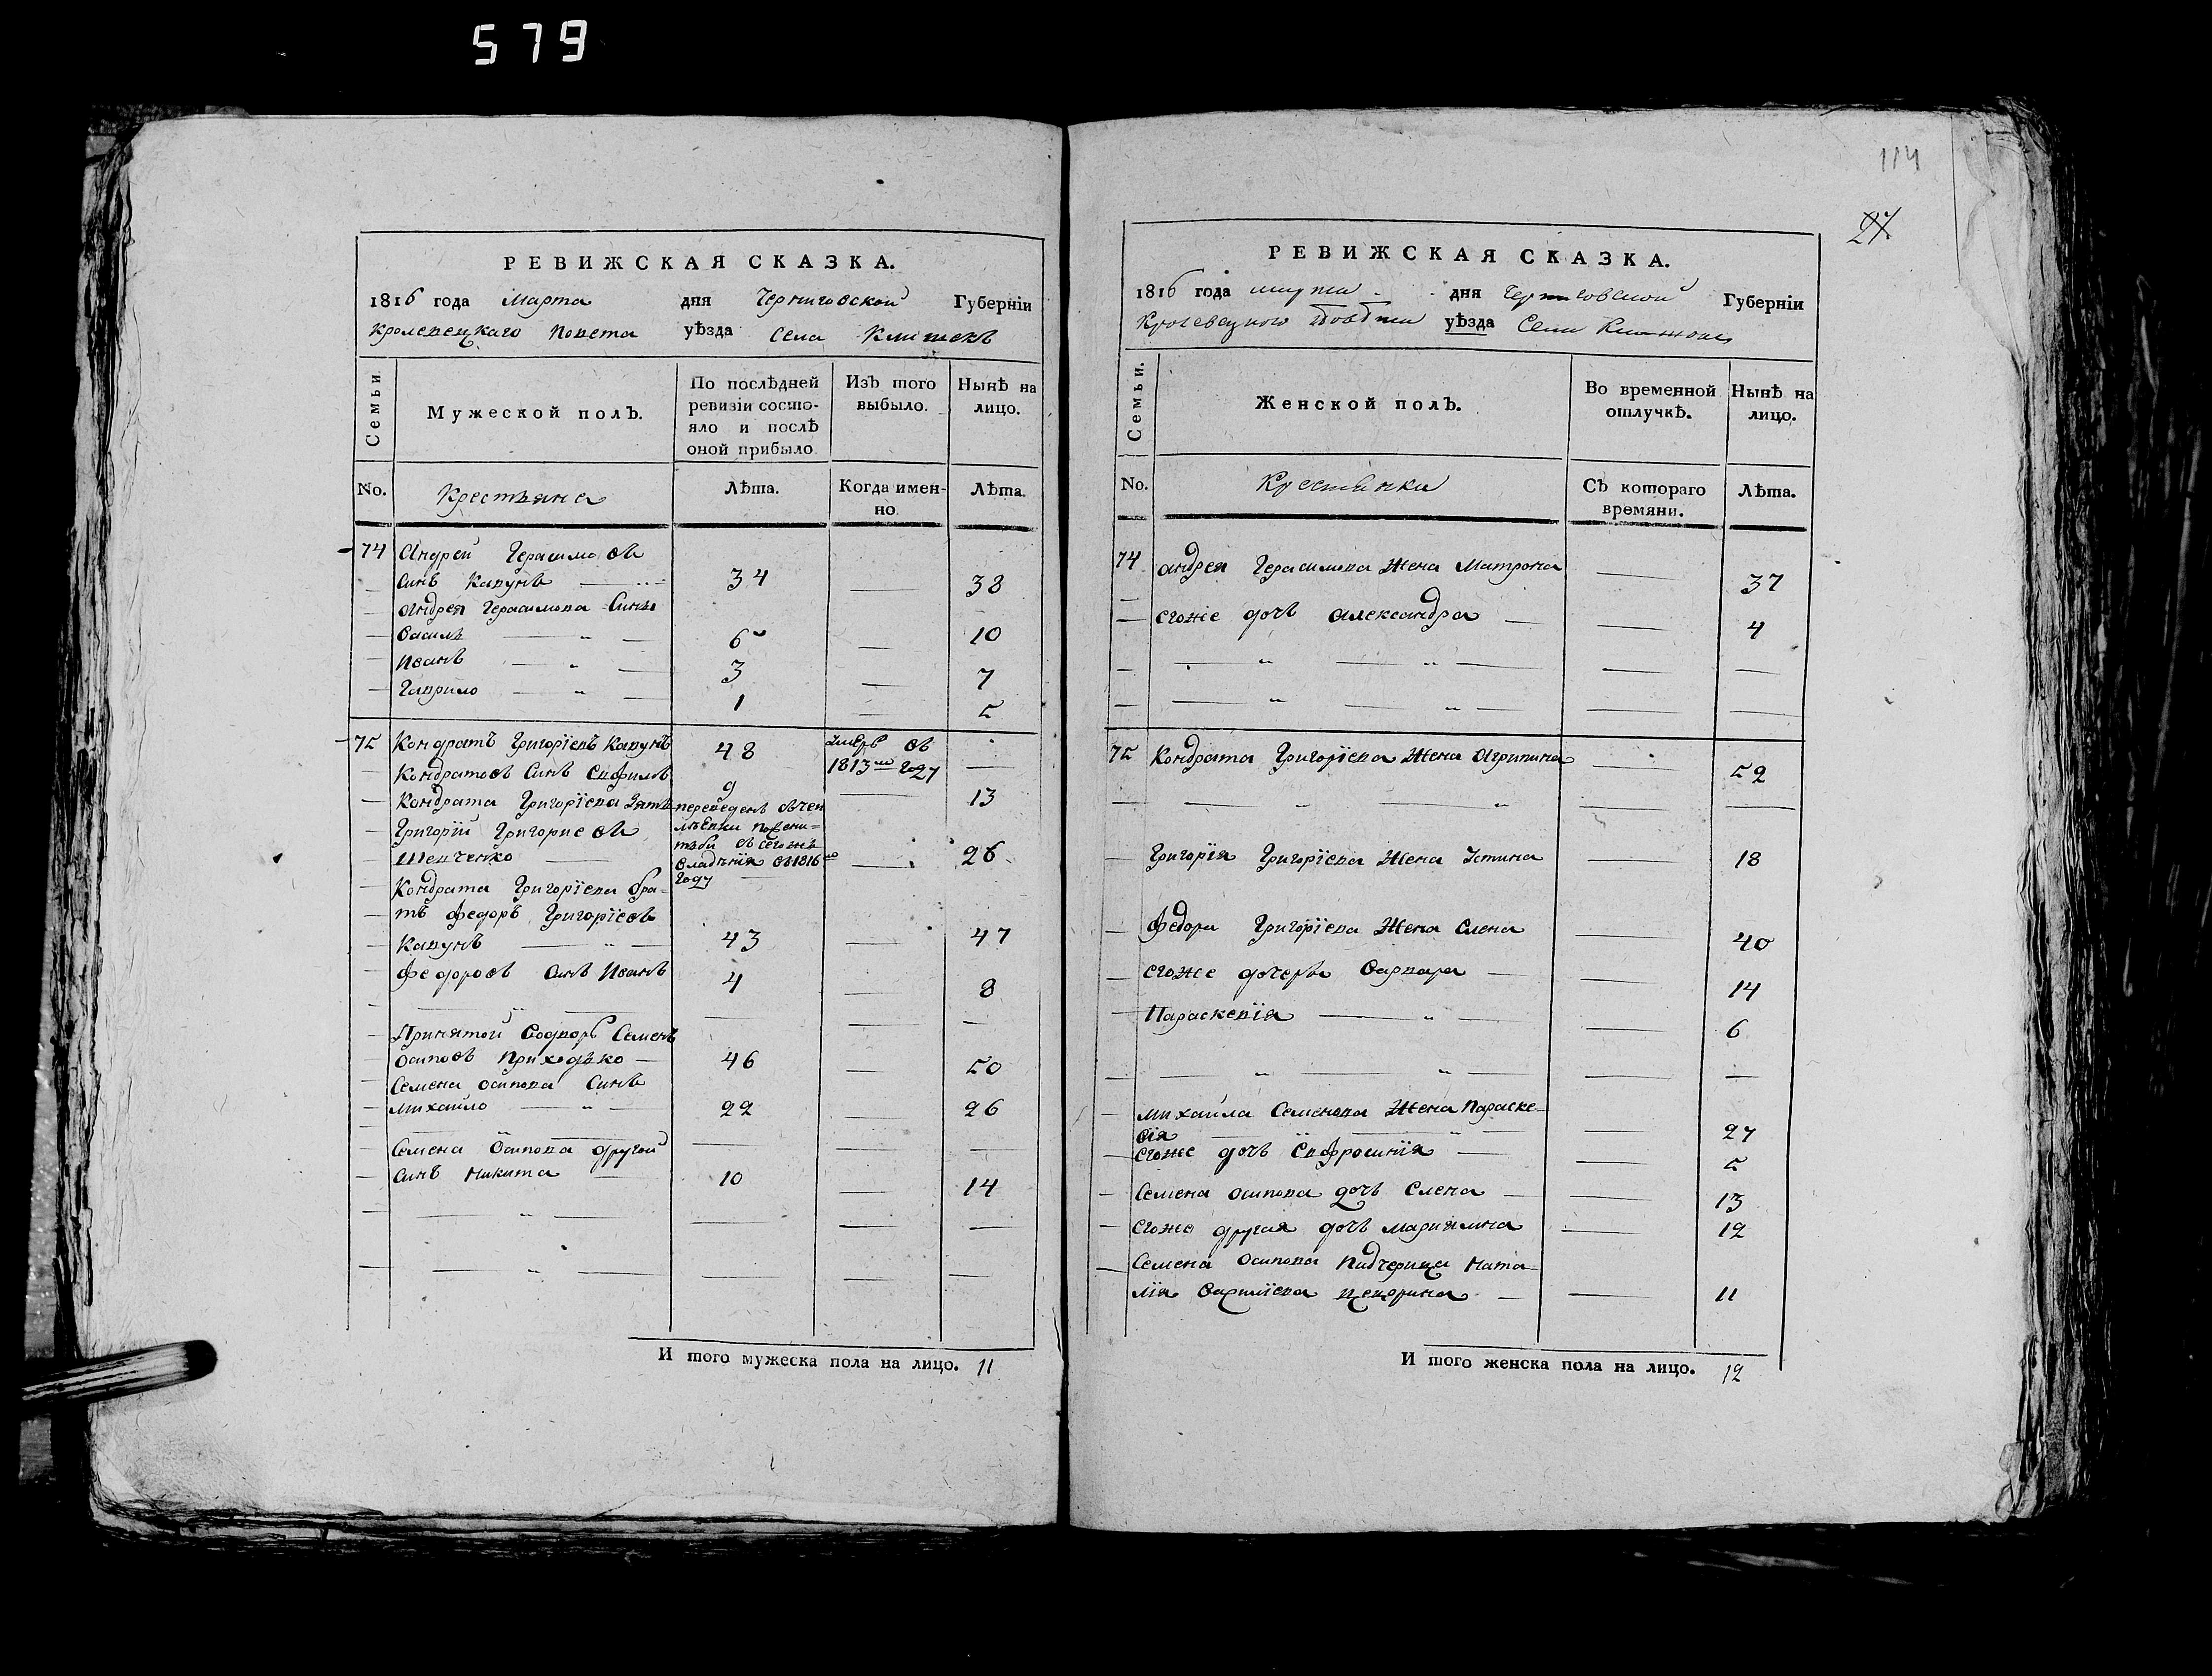 579
114
27
РЕВИЖСКАЯ СКАЗКА.
1816 года Марта дня Черниговской Губерніи
Кролевецкаго Повета уѣзда Села Клишекъ
Семьи
Мужеской полъ.
По послѣдней ревизіи состо-
яло и послѣ
оной прибыло
Изъ того выбыло.
Нынѣ на лицо.
No.
Крестьяне
Лѣта.
Когда имен-
но.
Лѣта.
74 Андрей Герасимовъ
Синъ Капунъ 34 38
Андрея Герасимова Сини
Василь 6 10
Иванъ 3 7
Гаврило 1 5
75 Кондратъ Григорїевъ Капунъ 48 умеръ въ
1813мъ году
Кондратовъ Синъ Евфимъ 9 13
Кондрата Григорїева Зять переведенъ
Григорїй Григориевъ
Шевченко владѣнїя въ 1816 26
году
Кондрата Григорїева бра-
тъ Федоръ Григорїевъ
Капунъ 43 47
Федоровъ Синъ Иванъ 4 8
Принятой Семенъ
Осиповъ Приходько 46 50
Семена Осипова Синъ
Михайло 22 26
Семена Осипова другой
Синъ Никита 10 14
И того мужеска пола на лицо. 11
РЕВИЖСКАЯ СКАЗКА.
1816 года марта дня Черниговской Губерніи
Кролевецкого Повѣта уѣзда Села
Семьи.
Женской полъ.
Во временной отлучкѣ.
Нынѣ на лицо.
No.
Крестянки
Съ котораго времяни.
Лѣта.
74 Андрея Герасимова Жена Матрона 37
егоже дочь Александра 4
75 Кондрата Григорїева Жена Агрипина 52
Григорїя Григорїева Жена Устина 18
Федора Григорїева Жена Елена 40
егоже дочеры Варвара 14
Параскевїя 6
Михайла Семенова Жена Параске-
вїя 27
егоже дочь Евфросинїя 5
Семена Осипова дочь Елена 13
егоже другая дочь Марїямна 12
Семена Осипова Падчерица Ната-
лїя Василїева 11
И того женска пола на лицо. 12